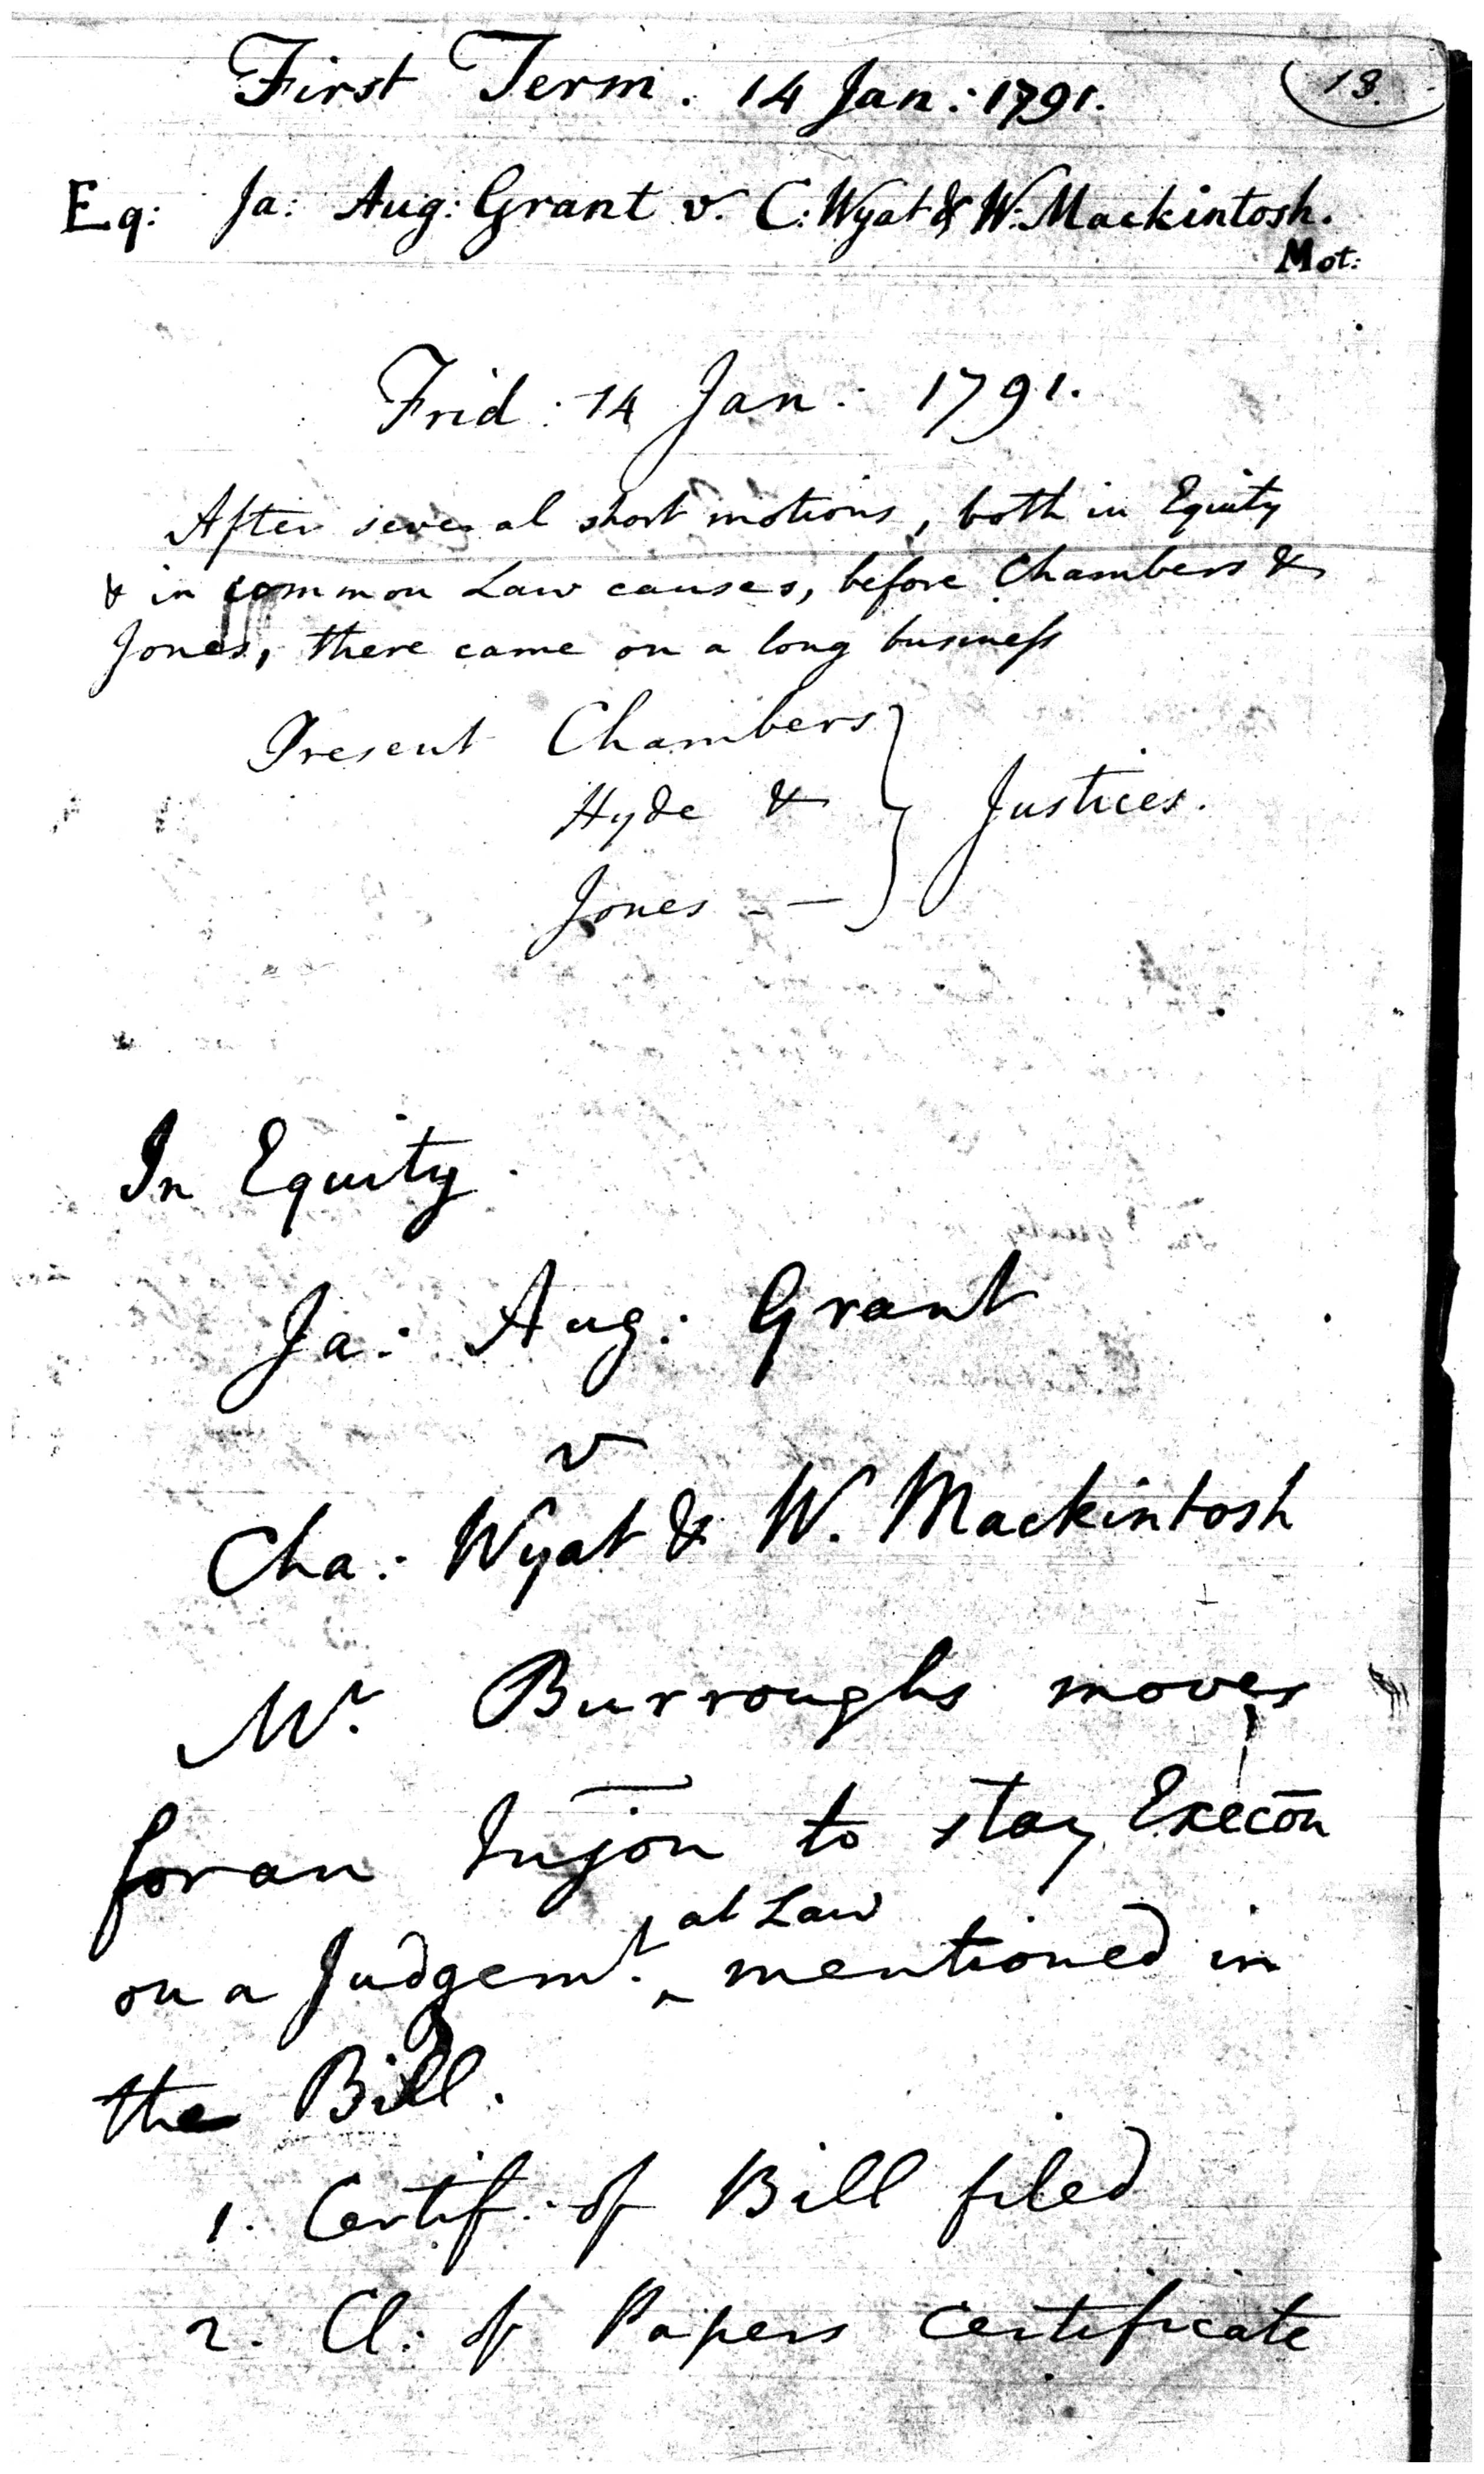 First Term. 14 Jan: 1791.
13.
Eq: Ja: Aug: Grant v. C: Wyat & W: Mackintosh.
Mot:
Frid: 14 Jan: 1791.
After several short motions, both in Equity
& in common Law causes, before Chambers &
Jones, there came on a long business
Present Chambers
Hyde & } Justices.
Jones - —
In Equity.
Ja: Aug: Grant
v
Cha: Wyat & W. Mackintosh
Mr. Burroughs moves
for an Injōn to stay Execōn
on a Judgemt. ^ at Law mentioned in
the Bill.
1. Certif: of Bill filed
2. Cl: of Papers Certificate